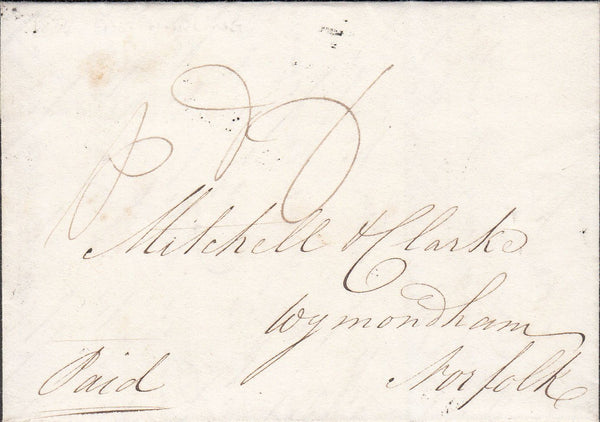 Mitchell & Clarke
Wymondham
Norfolk
Paid